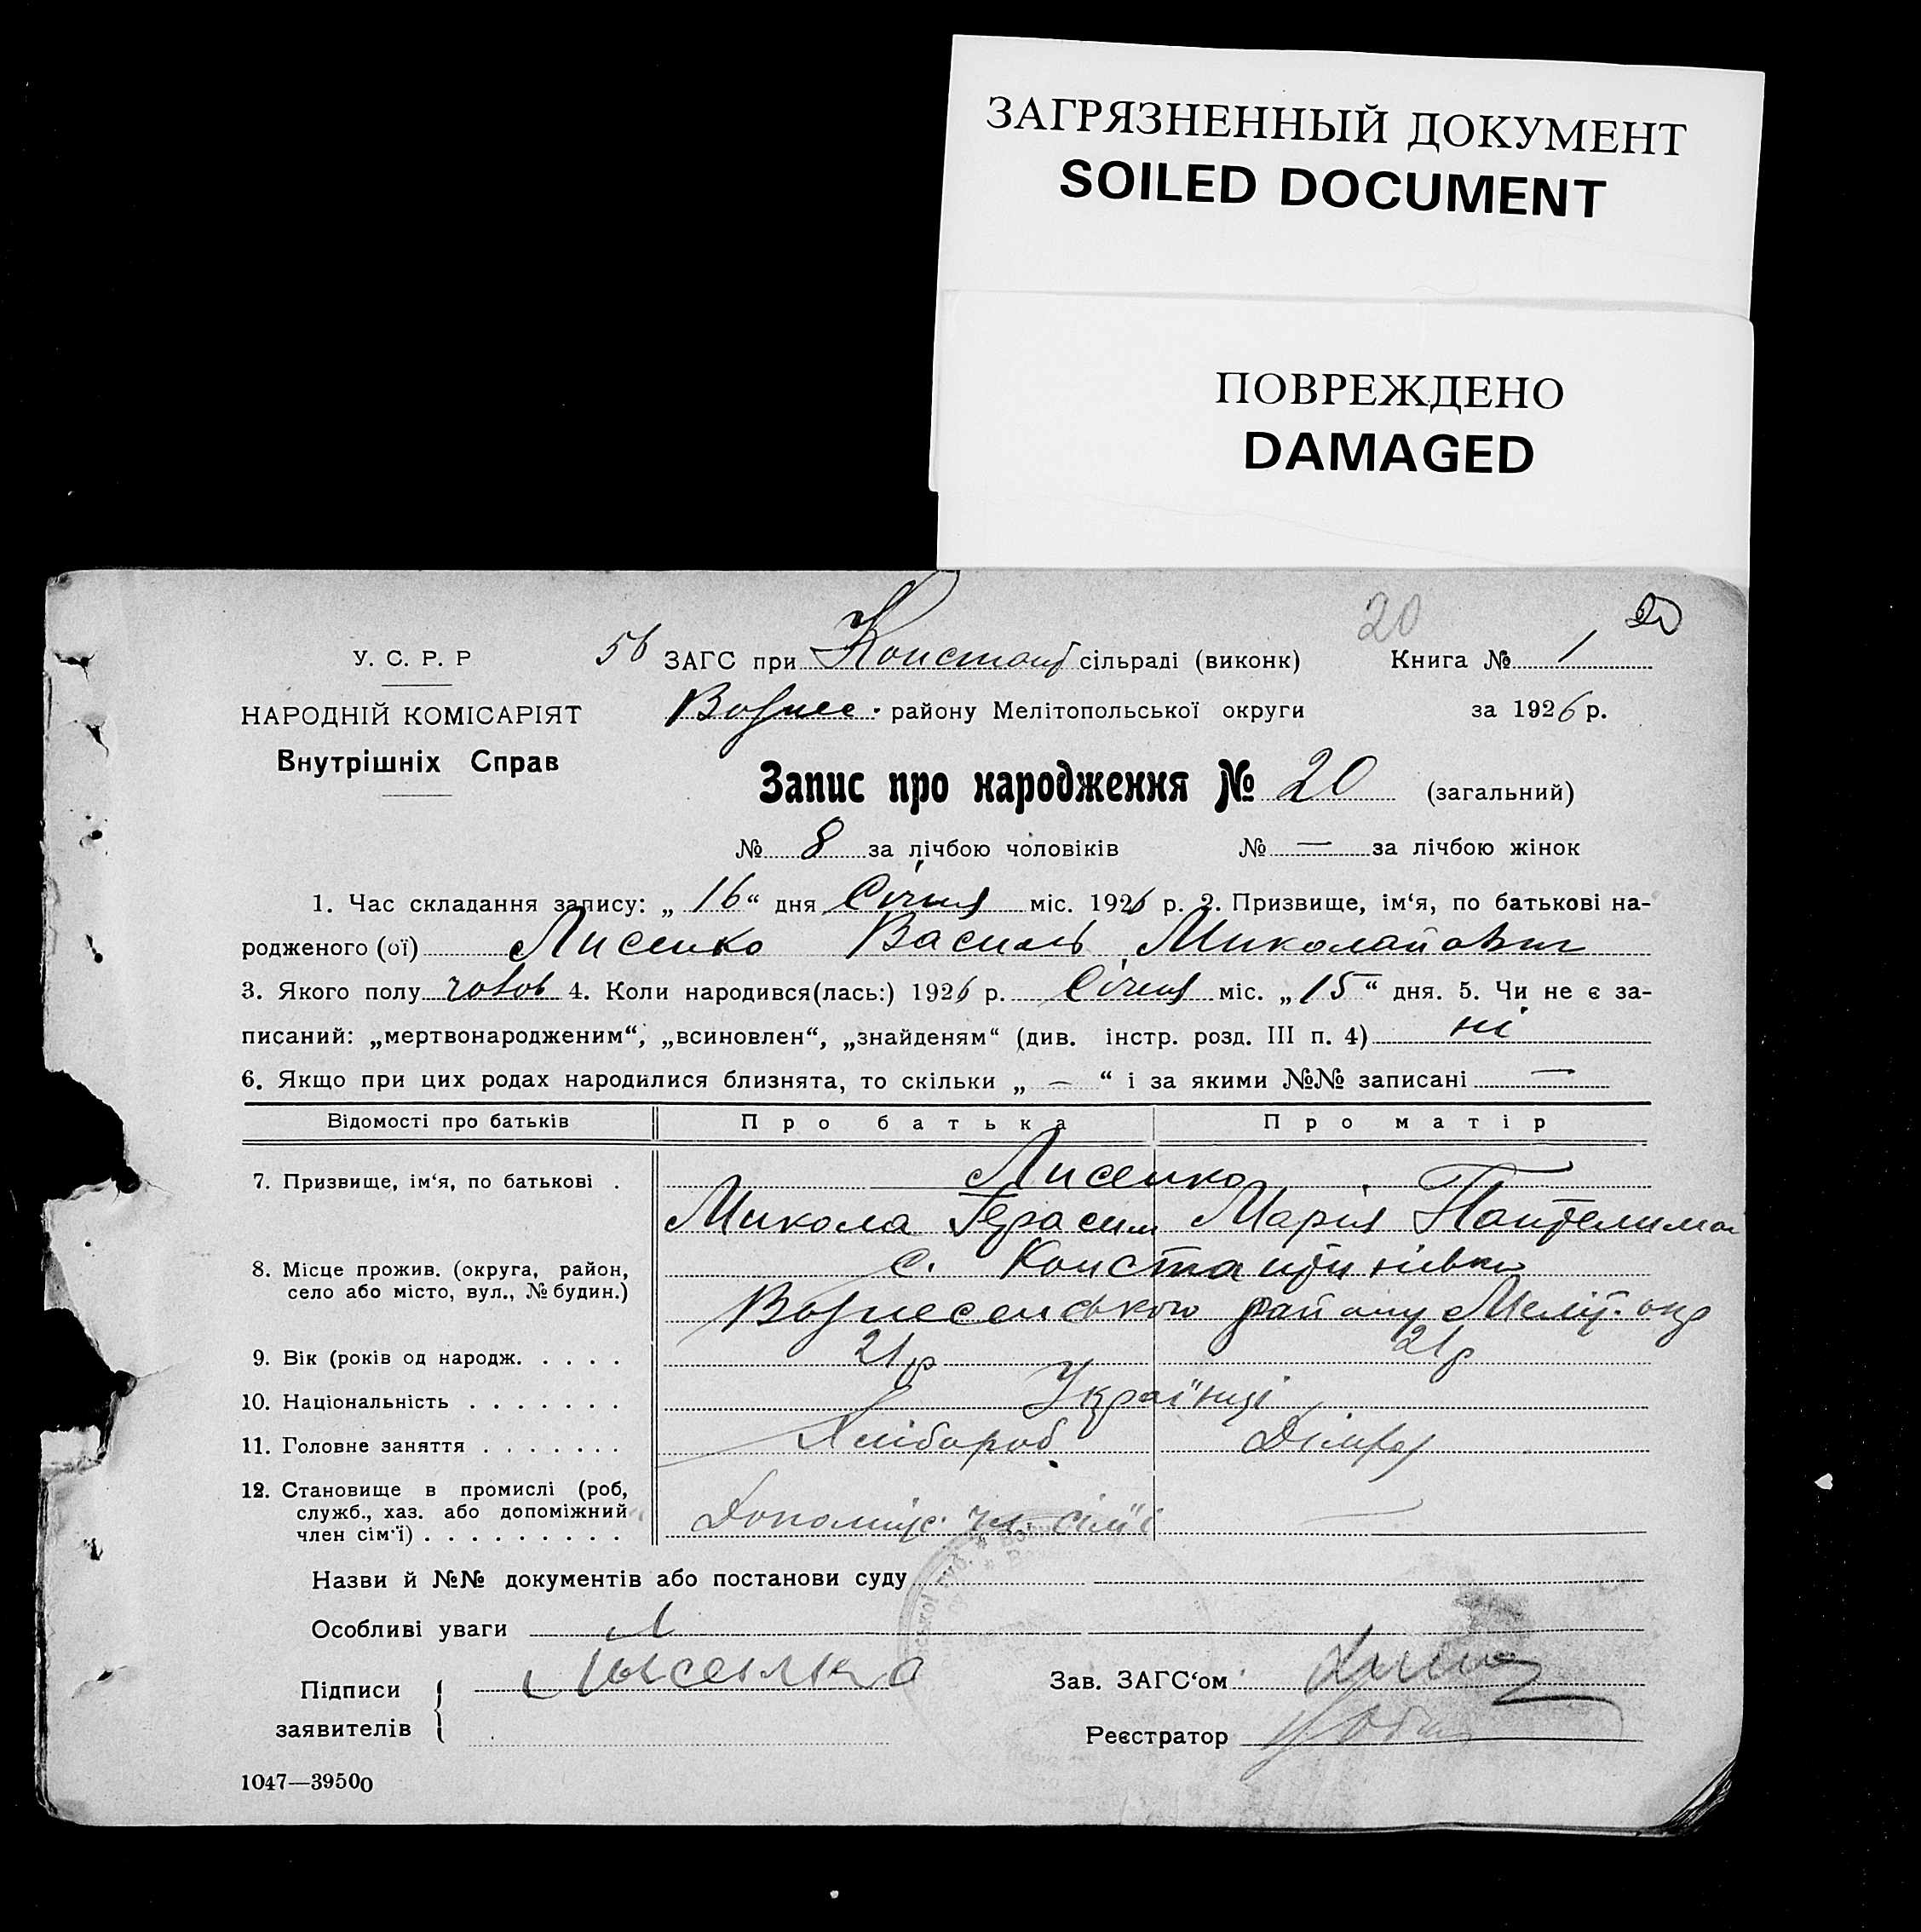 ЗАГРЯЗНЕННЫЙ ДОКУМЕНТ
SOILED DOCUMENT
ПОВРЕЖДЕНО
DAMAGED
20 20
У. С. Р. Р
56 ЗАГС при Констант сільраді (виконк) Книга № 1
НАРОДНІЙ КОМІСАРІЯТ
Внутрішніх Справ
Вознес. району Мелітопольської округи за 1926 р.
Запис про народження № 20 (загальний)
№ 8 за лічбою чоловіків № — за лічбою жінок
1. Час складання запису: „ 16 “ дня Січня міс. 1926 р. 2. Призвище, ім‘я, по батькові на-
родженого (ої) Лисенко Василь Миколайович
3. Якого полу чолов 4. Коли народився(лась:) 1926 р. Січня міс. „ 15 “ дня. 5. Чи не є за-
писаний: „мертвонародженим“, „всиновлен“, „знайденям“ (див. інстр. розд. III п. 4) ні
6. Якщо при цих родах народилися близнята, то скільки „ — “ і за якими №№ записані —
Відомості про батьків Про батька Про матір
7. Призвище, ім‘я, по батькові . Лисенко
Микола Герасим Марія Пантелимон
8. Місце прожив. (округа, район, село або місто, вул., № будин.) с. Константинівка
Вознесенського району Меліт. окр
9. Вік (років од народж. . . . . 21 р 21 р
10. Національність . . . . . . . Українці
11. Головне заняття . . . . . . . Хлібороб
12. Становище в промислі (роб, служб., хаз. або допоміжний член сім‘ї) . . . . . . . . . Допоміж. чл. сім'ї —
Назви й №№ документів або постанови суду
Особливі уваги
Підписи заявителів Лысенко
Зав. ЗАГС‘ом
Реєстратор
1047—39500